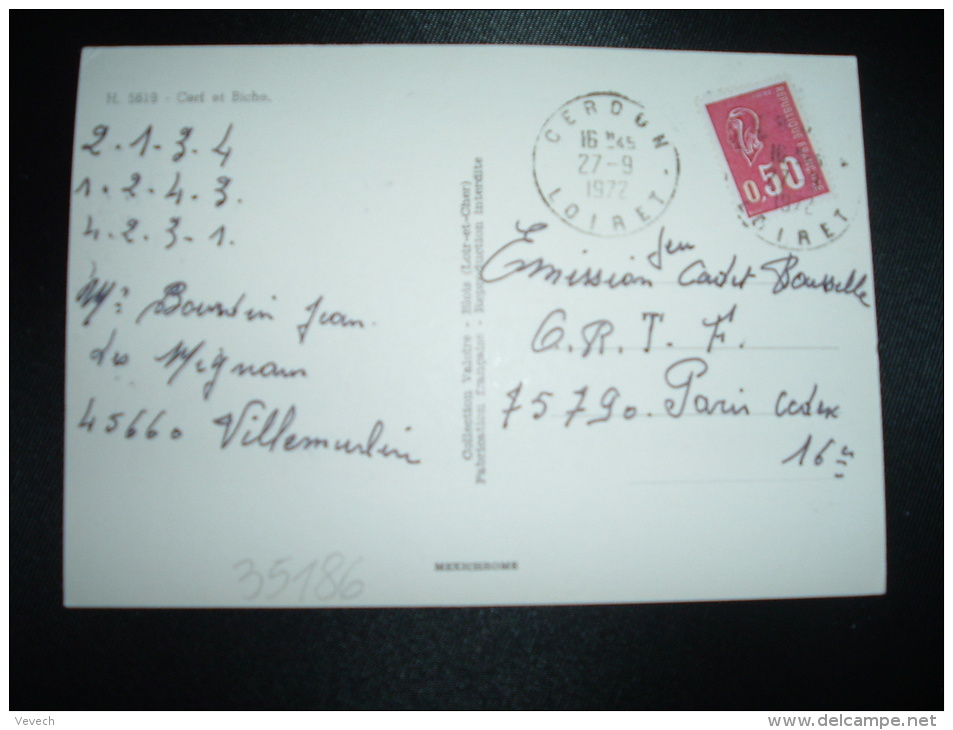 H. 5619 - Cerf et Biche.
2.1.3.4
1.2.4.3.
4.2.3.1.
Mr Bourdin Jean.
Les Mignans
45660 Villemurlin
35186
Collection Valoire - Blois (Loir-et-Cher)
Fabrication française - Reproduction interdite
MEXICHROME
CERDON
16 H 45
27-9
1972
LOIRET
REPUBLIQUE FRANÇAISE
0,50
1972
LOIRET
Jeu
Emission Cadet Rousselle
O.R.T.F.
75790. Paris Cedex
16e
Vevech
www.delcampe.net